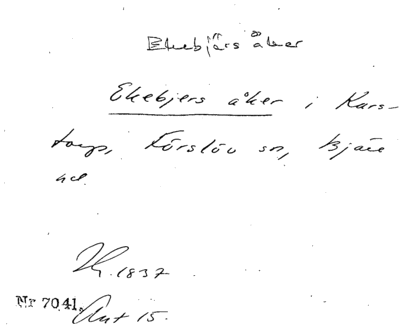 Ekebjärs åker
Ekebjers åker i Kars-
torp, Förslöv sn, Bjäre
hd.
1837
Nr 7041. Akt 15.